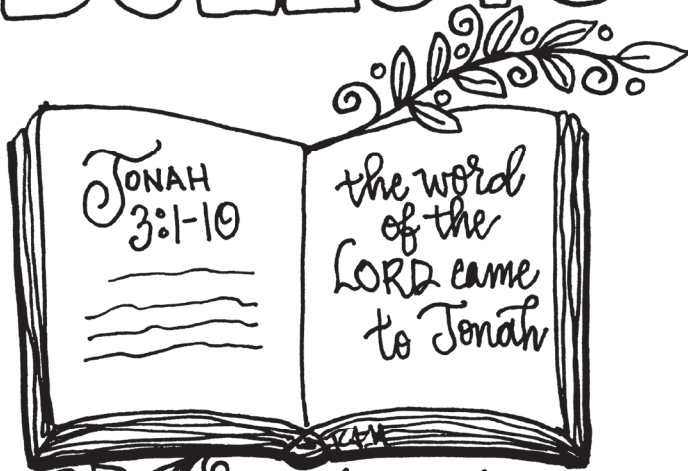 JONAH
3:1-10
the word
of the
LORD came
to Jonah